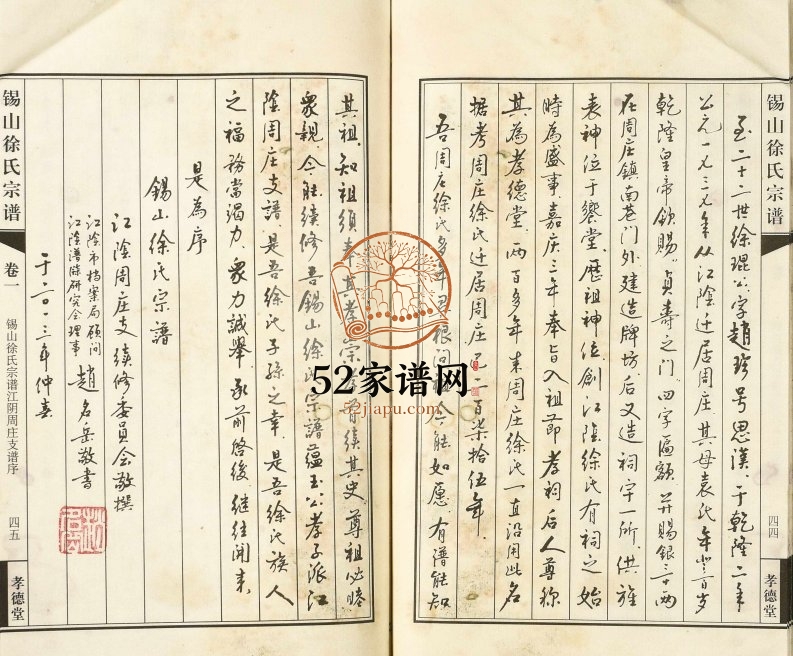 锡山徐氏宗谱
四四
孝德堂
至二十二世徐琨公字趙珍号思漢于乾隆二年
公元一七三七年从江陰迁居周庄其母袁氏年登百岁
乾隆皇帝欽賜“貞壽之門”四字匾額并賜銀三十两
在周庄鎮南巷门外建造牌坊后又造祠宇一所供旌
表神位于饗堂歷祖神位創江陰徐氏有祠之始
時為盛事嘉庆三年奉旨入祖節孝祠后人尊称
其為孝德堂两百多年来周庄徐氏一直沿用此名
据考周庄徐氏迁居周庄已二百柒拾伍年
吾周庄徐氏多年尋根问祖今能如愿有譜能知
其祖知祖須其孝宗首续其史尊祖必睦
衆親今能續修吾錫山徐氏宗譜蕴玉公孝子派江
陰周庄支譜是吾徐氏子孫之幸是吾徐氏族人
之福務當竭力衆力誠舉承前啓後继往開来
是為序
錫山徐氏宗譜
江陰周庄支续修委員会敬撰
江陰市档案局顧问
江陰譜牒研究会理事
趙名岳敬書
于二〇一三年仲春
锡山徐氏宗谱
卷一
锡山徐氏宗谱江阴周庄支谱序
四五
孝德堂
52家谱网
52jiapu.com